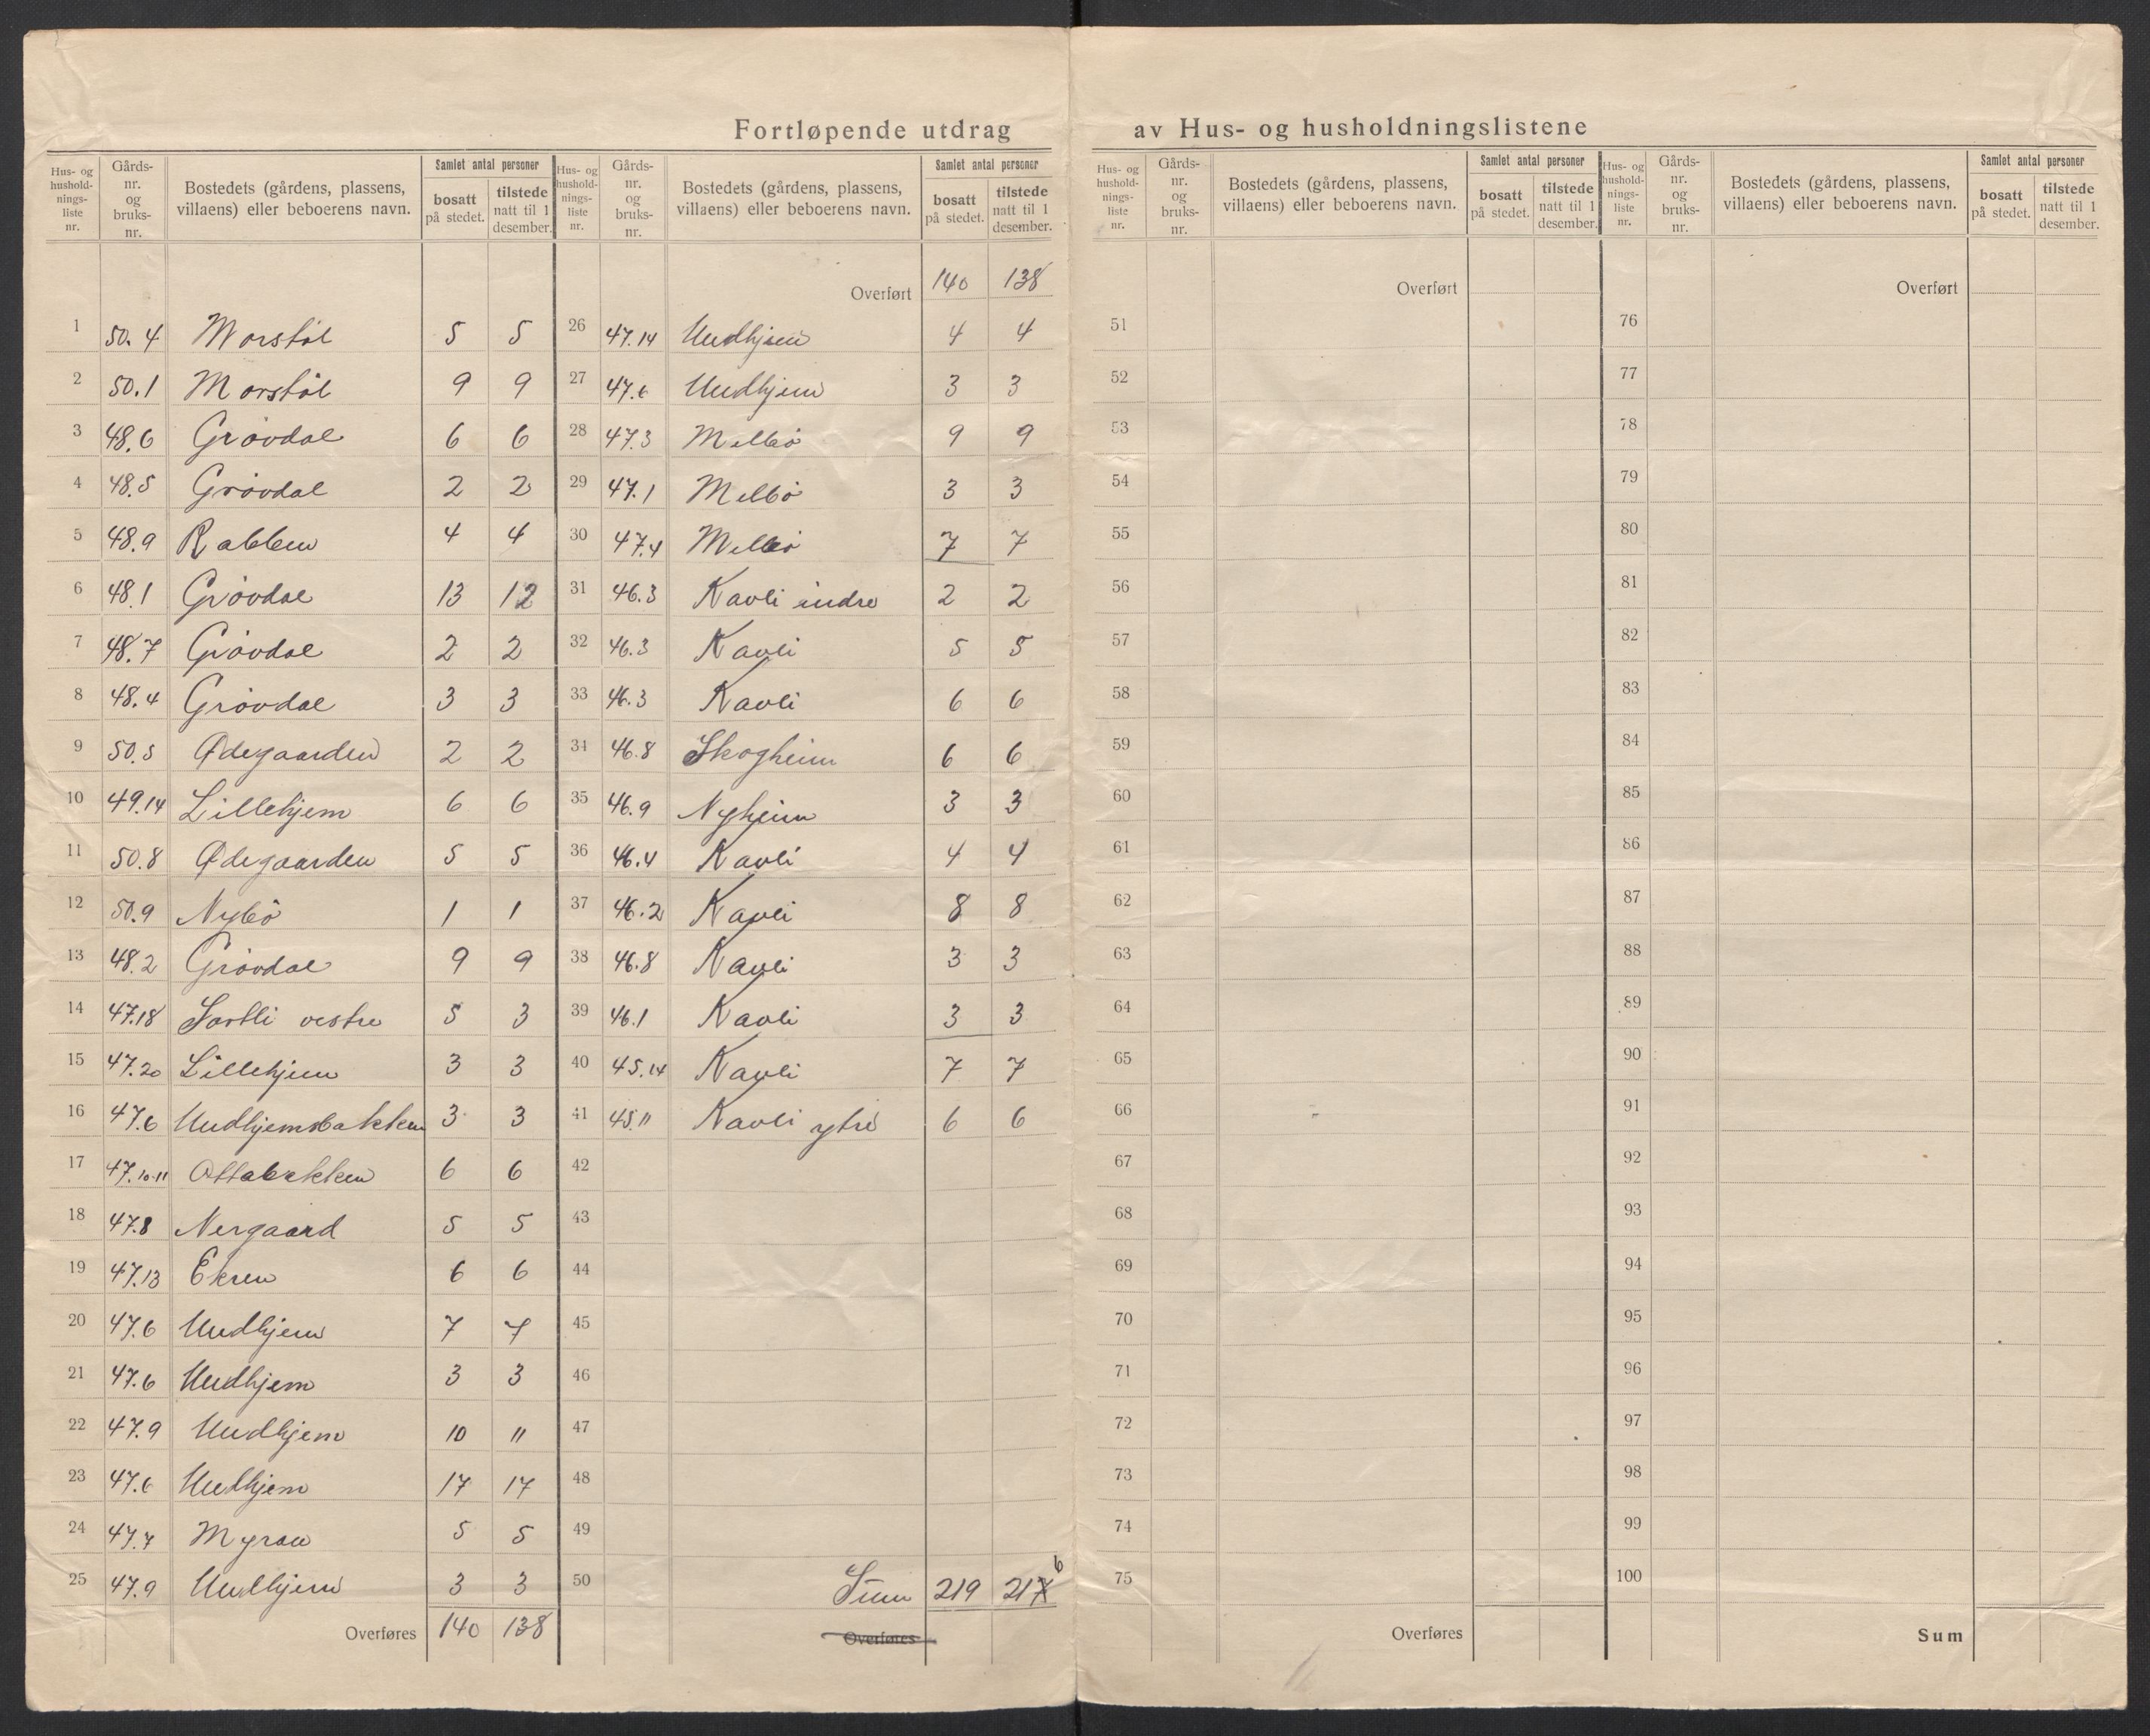 Fortløpende utdrag av Hus- og husholdningslistene
Hus- og hushold-nings-liste nr. Gårds-nr. og bruks-nr. Bostedets (gårdens, plassens, villaens) eller beboerens navn. Samlet antal personer bosatt på stedet. tilstede natt til 1 desember.
1 50.4 Morstøl 5 5
2 50.1 Morstøl 9 9
3 48.6 Grøvdal 6 6
4 48.5 Grøvdal 2 2
5 48.9 Rabben 4 4
6 48.1 Grøvdal 13 12
7 48.7 Grøvdal 2 2
8 48.4 Grøvdal 3 3
9 50.5 Ødegaarden 2 2
10 49.14 Lillehjem 6 6
11 50.8 Ødegaarden 5 5
12 50.9 Nybö 1 1
13 48.2 Grøvdal 9 9
14 47.18 Sortli vestre 5 3
15 47.20 Lillehjem 3 3
16 47.6 Undhjemsbakken 3 3
17 47.10-11 Ottabakken 6 6
18 47.8 Nergaard 5 5
19 47.13 Ekren 6 6
20 47.6 Undhjem 7 7
21 47.6 Undhjem 3 3
22 47.9 Undhjem 10 11
23 47.6 Undhjem 17 17
24 47.7 Myran 5 5
25 47.9 Undhjem 3 3
Overføres 140 138
Hus- og hushold-nings-liste nr. Gårds-nr. og bruks-nr. Bostedets (gårdens, plassens, villaens) eller beboerens navn. Samlet antal personer bosatt på stedet. tilstede natt til 1 desember.
Overført 140 138
26 47.14 Undhjem 4 4
27 47.6 Undhjem 3 3
28 47.3 Melbö 9 9
29 47.1 Melbö 3 3
30 47.4 Melbö 7 7
31 46.3 Kavli indre 2 2
32 46.3 Kavli 5 5
33 46.3 Kavli 6 6
34 46.8 Skogheim 6 6
35 46.9 Nyheim 3 3
36 46.4 Kavli 4 4
37 46.2 Kavli 8 8
38 46.8 Kavli 3 3
39 46.1 Kavli 3 3
40 45.14 Kavli 7 7
41 45.11 Kavli ytre 6 6
42
43
44
45
46
47
48
49
50 Sum 219 217 6
Overføres
Hus- og hushold-nings-liste nr. Gårds-nr. og bruks-nr. Bostedets (gårdens, plassens, villaens) eller beboerens navn. Samlet antal personer bosatt på stedet. tilstede natt til 1 desember.
Overført
51
52
53
54
55
56
57
58
59
60
61
62
63
64
65
66
67
68
69
70
71
72
73
74
75
Overføres
Hus- og hushold-nings-liste nr. Gårds-nr. og bruks-nr. Bostedets (gårdens, plassens, villaens) eller beboerens navn. Samlet antal personer bosatt på stedet. tilstede natt til 1 desember.
Overført
76
77
78
79
80
81
82
83
84
85
86
87
88
89
90
91
92
93
94
95
96
97
98
99
100
Sum